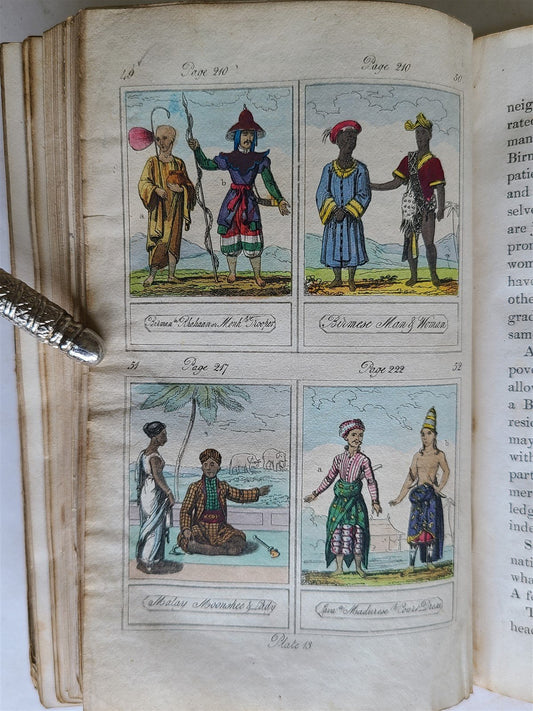 49 Page 210
Page 210 50
a b
Birman a Rahaan or Monk b Trooper
Birmese Man & Woman
51 Page 217
Page 222 52
a b
Malay Moonshee & Lady
a Madurese b Court Dress
Plate 13
neig
rated
man
Birm
patie
and
selve
are j
pron
wome
have
other
grad
sam
A
pove
allow
a B
resid
may
with
part
mer
ledg
inde
S
nati
wha
A fe
T
head